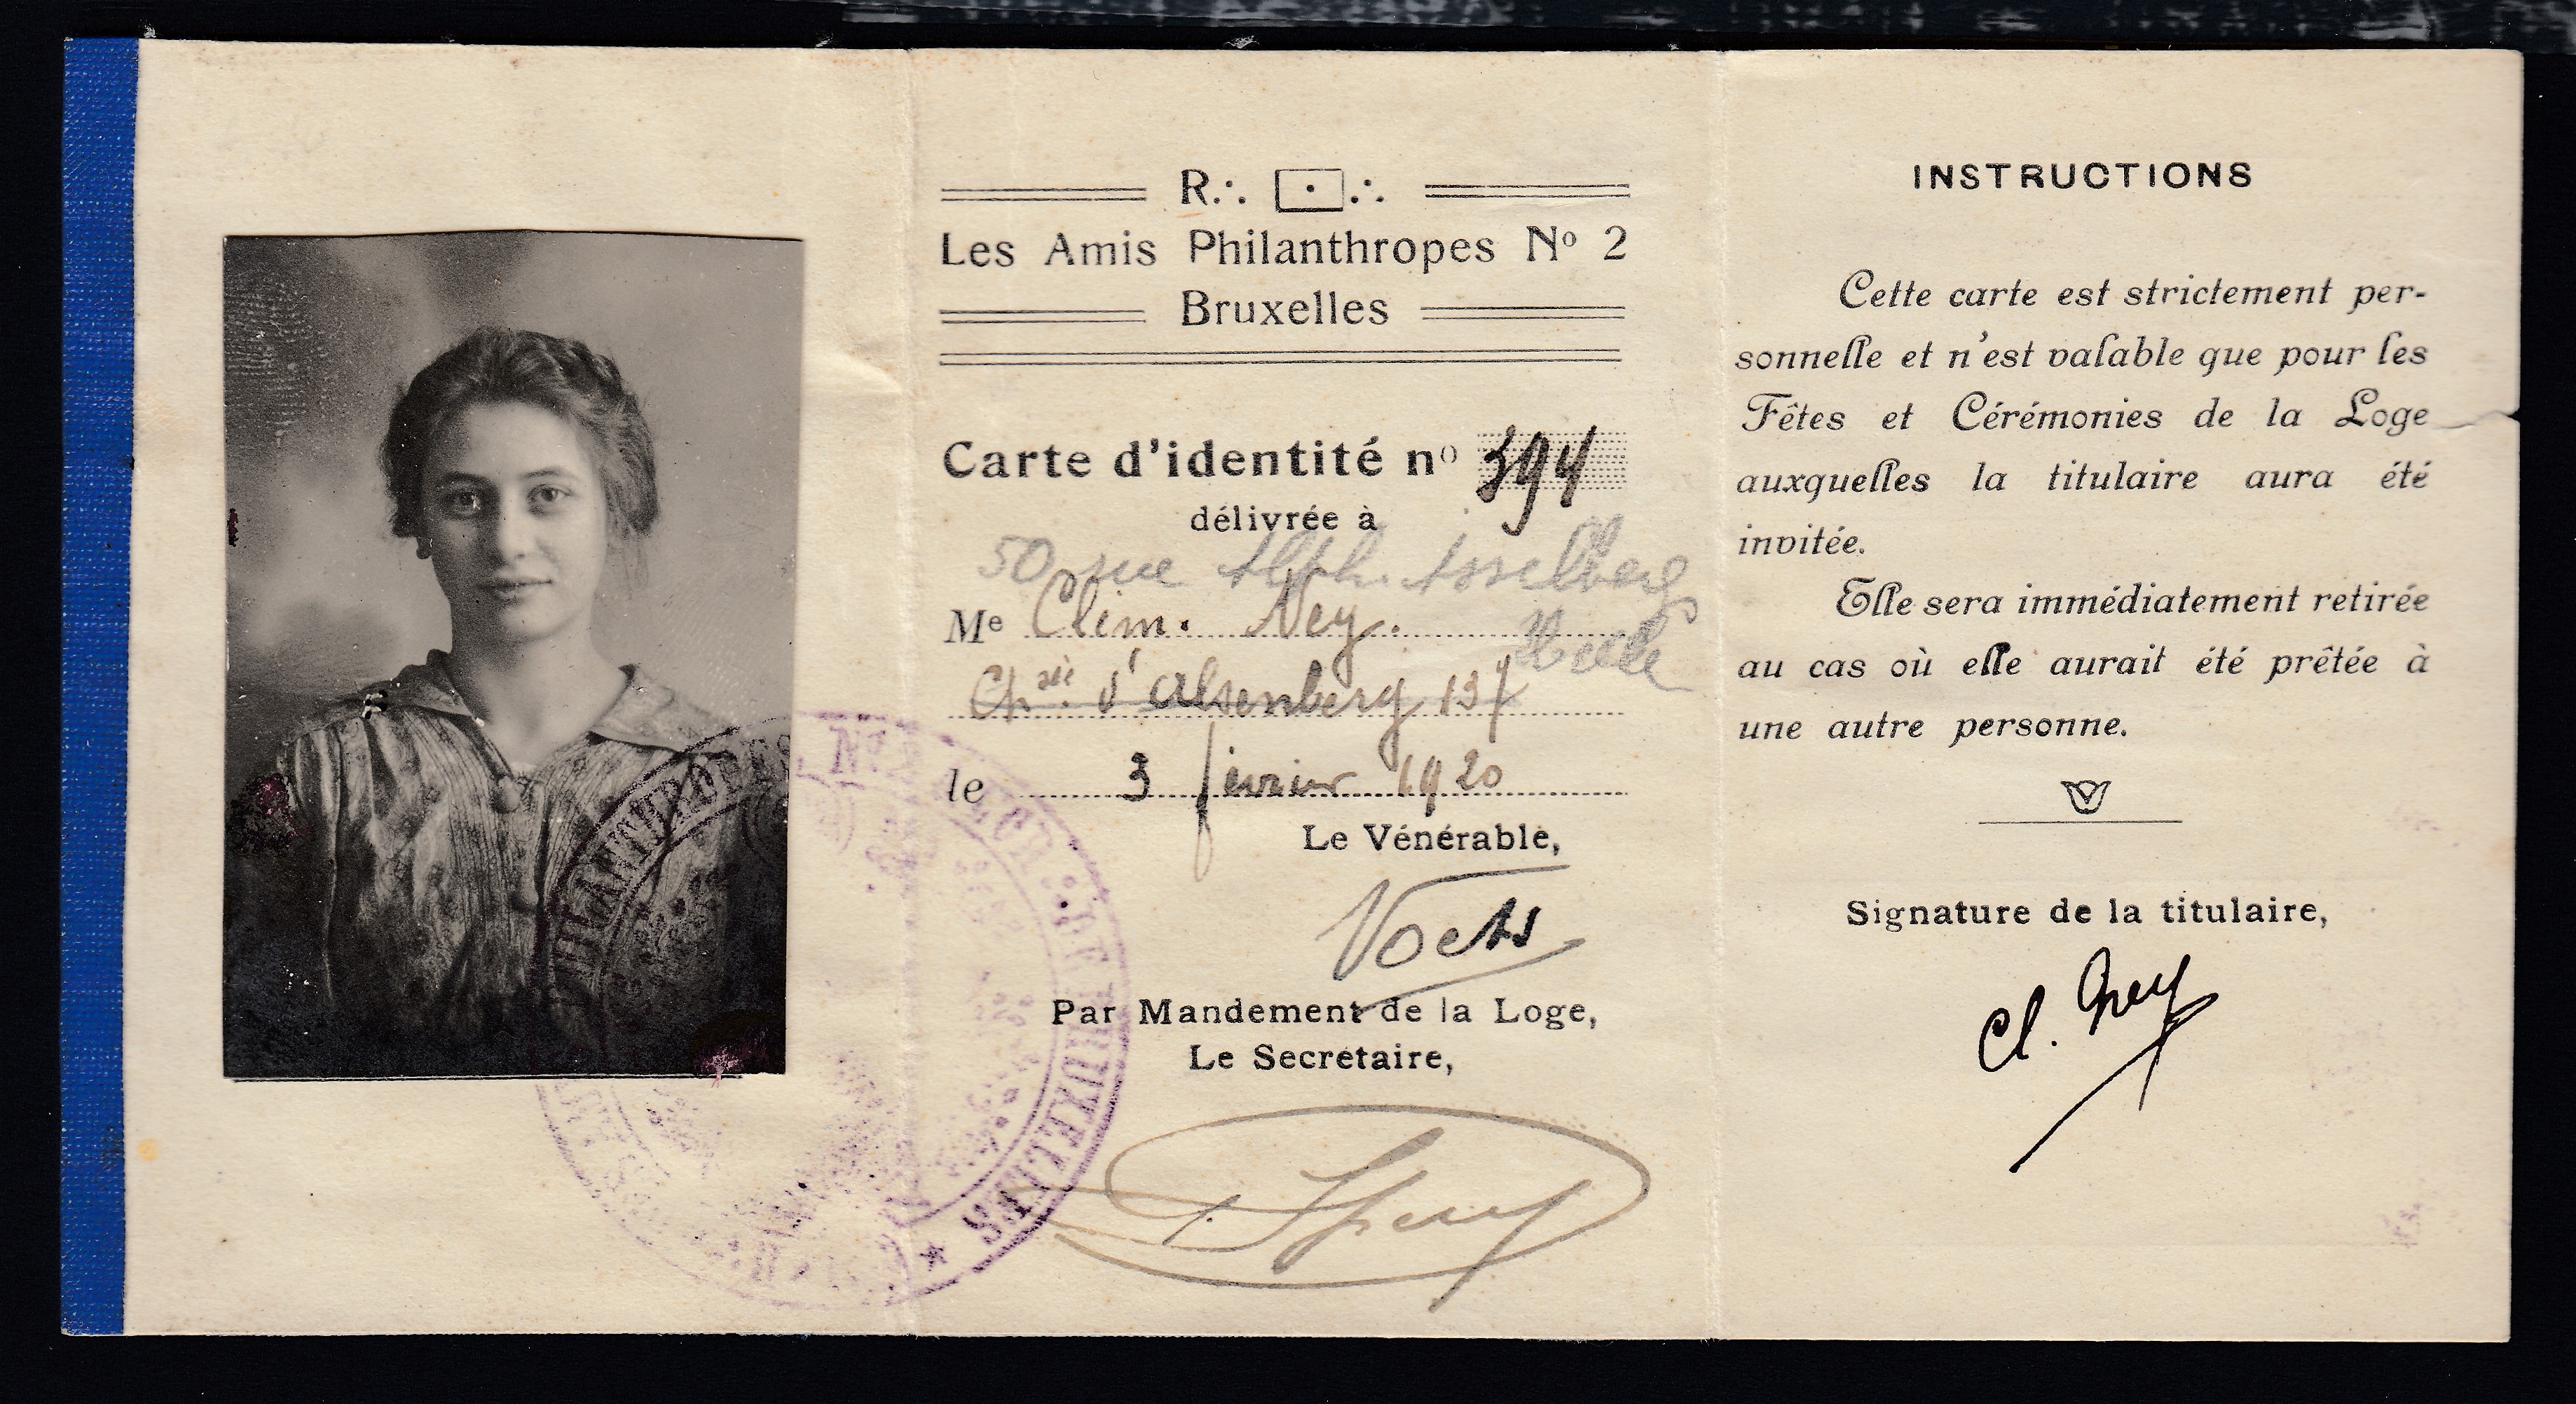 R∴ ⊡∴
Les Amis Philanthropes Nº 2
Bruxelles
Carte d'identité nº 394
délivrée à
50 rue Alph. Asselberg
Uccle
Me Clém. Ney.
Chaée d'Alsenberg 137
le 3 février 1920
Le Vénérable,
Voets
Par Mandement de la Loge,
Le Secrétaire,
PHILANTHROPES Nº 2
BRUXELLES
INSTRUCTIONS
Cette carte est strictement per-
sonnelle et n'est valable que pour les
Fêtes et Cérémonies de la Loge
auxquelles la titulaire aura été
invitée.
Elle sera immédiatement retirée
au cas où elle aurait été prêtée à
une autre personne.
Signature de la titulaire,
Cl. Ney